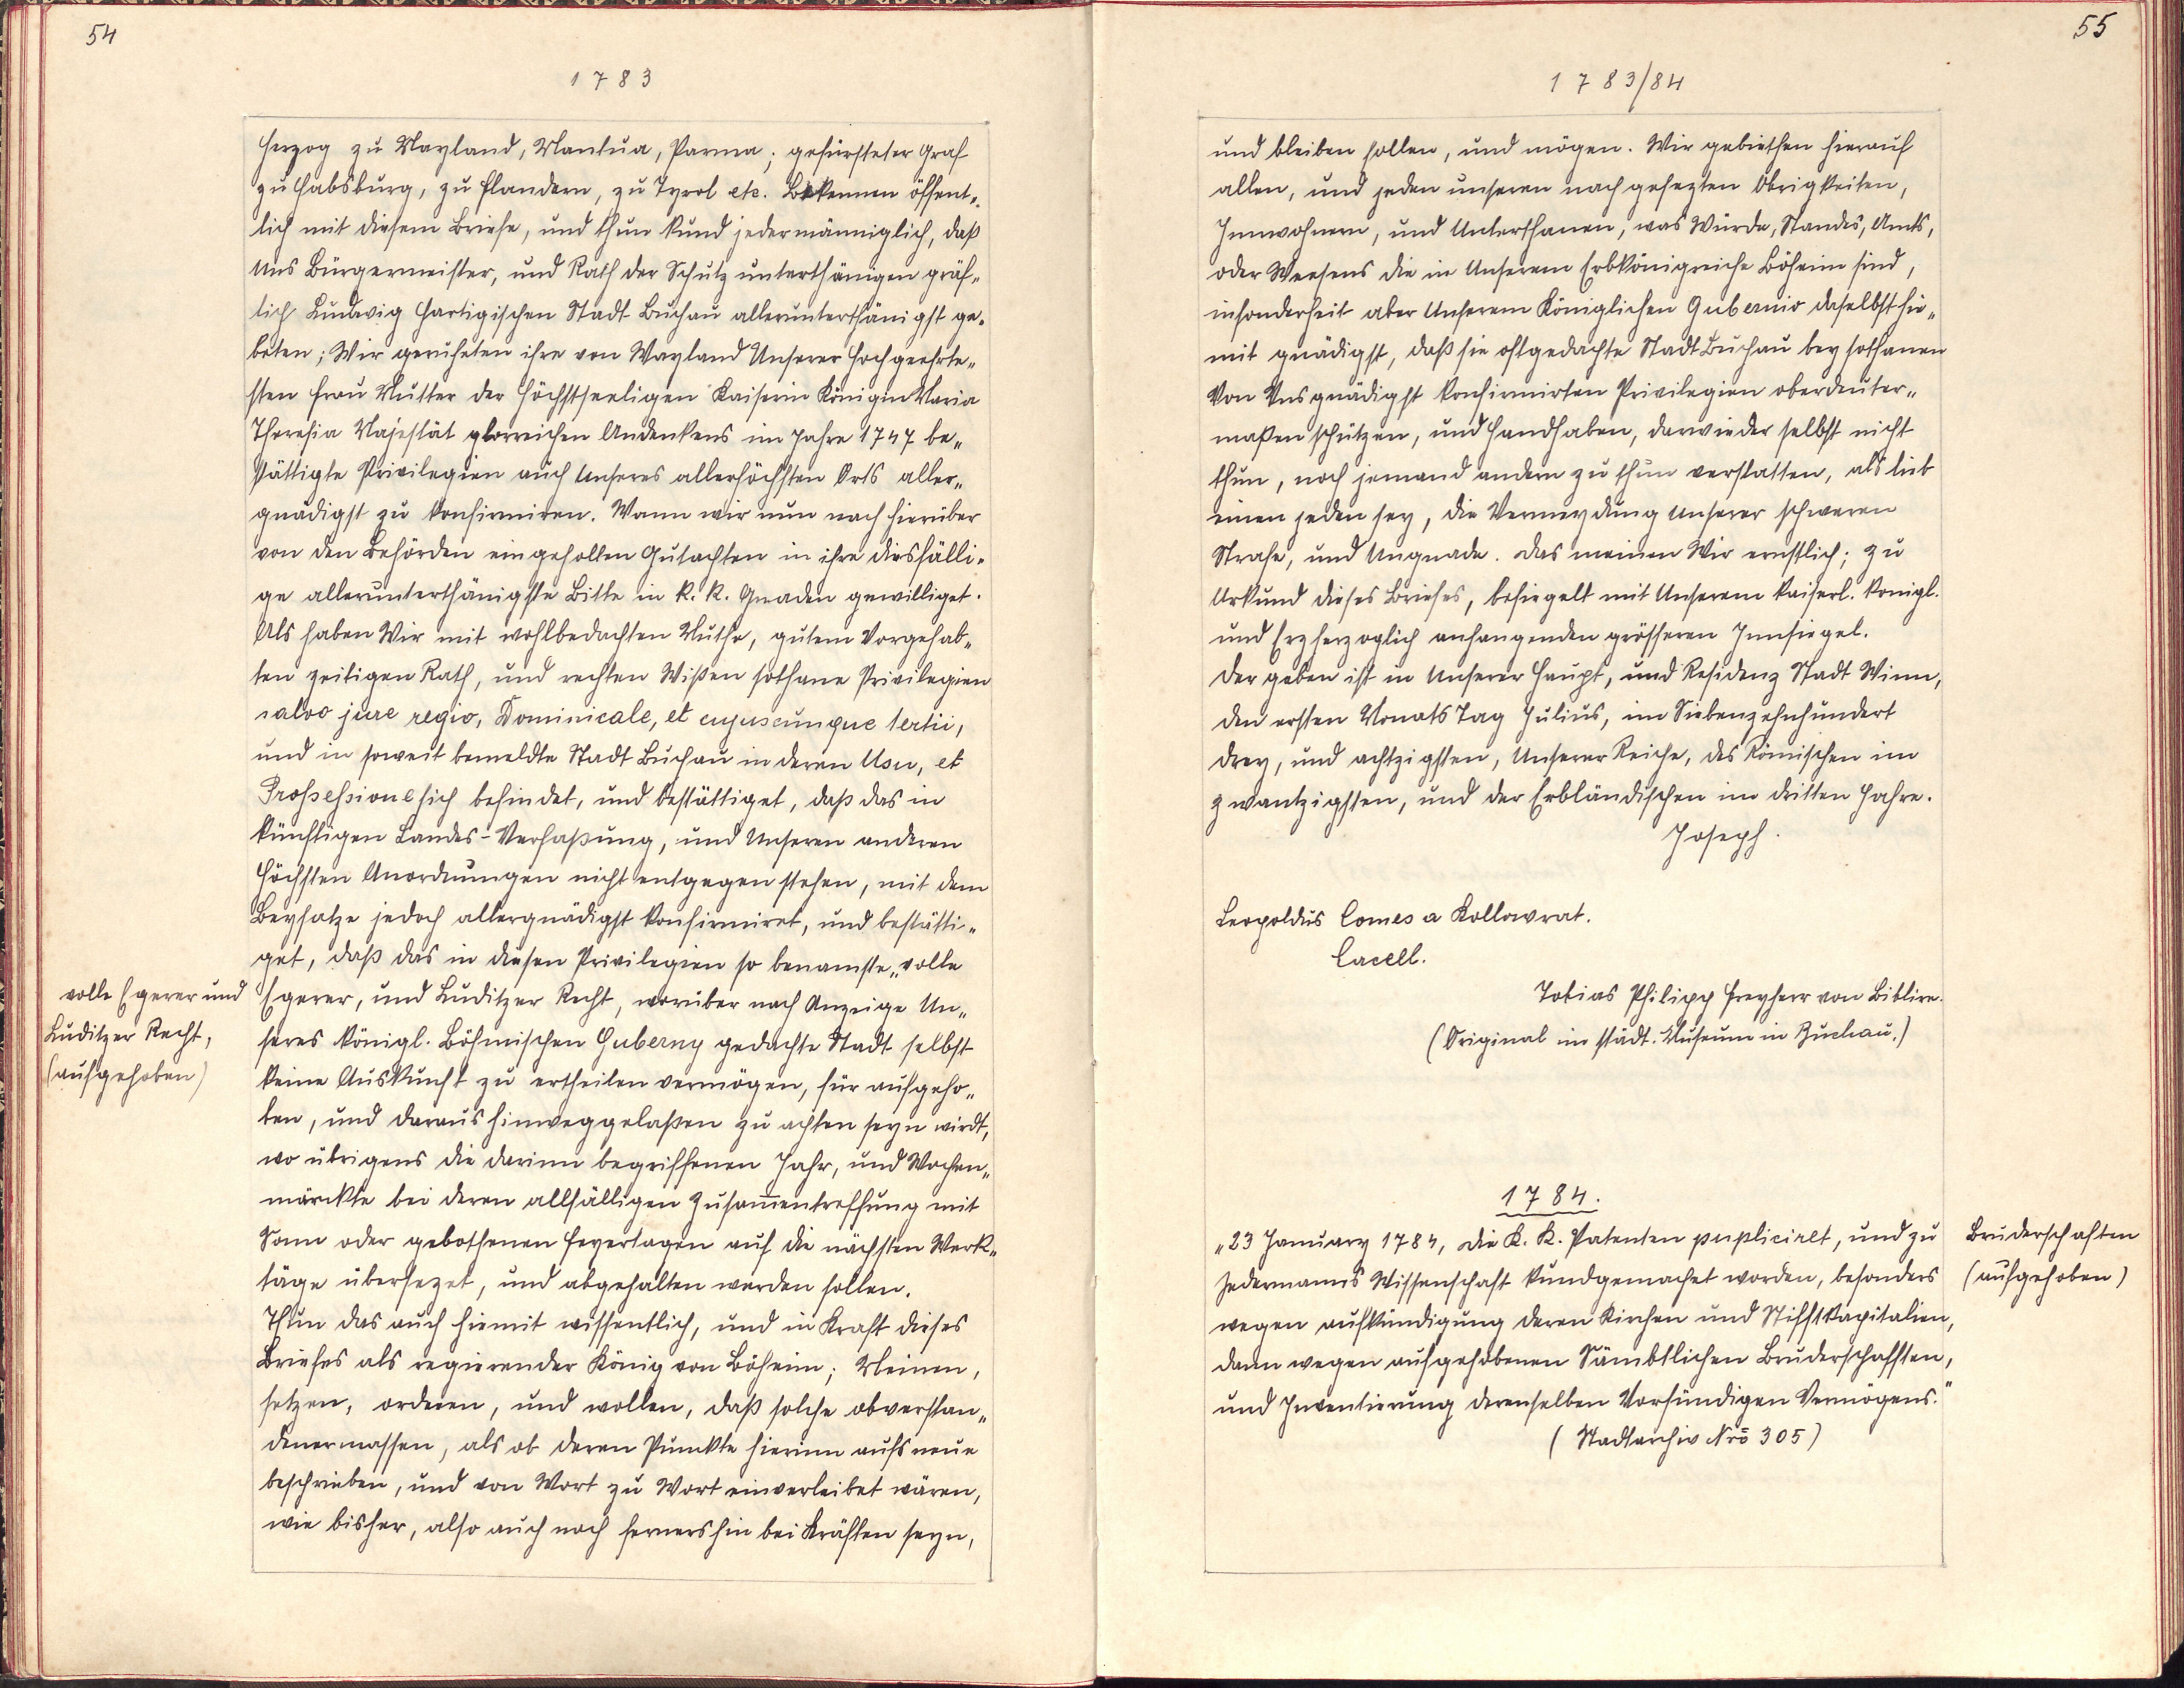 54
1783
Herzog zu Mayland, Mantua, Parma; gefürsteter Graf
zu Habsburg, zu Flandern, zu Tyrol etc. Bekennen öffent„
lich mit diesem Briefe, und thun kund jedermänniglich, daß
Uns Bürgermeister, und Rath der Schutz unterthänigen gräf„
lich Ludwig Hartigischen Stadt Buchau allerunterthänigst ge„
beten; Wir geruheten ihre von Wayland Unserer Hochgeehrte„
sten Frau Mutter der Höchstseeligen Kaiserin Königin Maria
Theresia Majestät glorreichen Andenkens im Jahre 1747 be„
stättigte Privilegien auch Unseres allerhöchsten Orts aller„
gnädigst zu konfirmiren. Wann wir nun nach hierüber
von den Behörden eingeholten Gutachten in ihre diesfälli„
ge allerunterthänigste Bitte in K. K. Gnaden gewilliget.
Als haben Wir mit wohlbedachten Muthe, gutem Vorgehab„
ten zeitigen Rath, und rechten Wißen sothane Privilegien
salvo jure regio, Dominicale, et cujuscunque tertii,
und in soweit bemeldte Stadt Buchau in deren Usu, et
Proßeßione sich befindet, und bestättiget, daß das in
künftigen Landes-Verfaßung, und Unseren anderen
Höchsten Anordnungen nicht entgegen stehen, mit dem
Beysatze jedoch allergnädigst konfirmiret, und bestätti„
get, daß das in diesen Privilegien so benamste „volle
volle Egerer und
Luditzer Recht,
(aufgehoben)
Egerer, und Luditzer Recht, worüber nach Anzeige Un„
seres königl. Böhmischen Guberny gedachte Stadt selbst
keine Auskunft zu ertheilen vermögen, für aufgeho„
ben, und daraus hinweggelaßen zu achten seyn wirdt,
wo übrigens die darinn begriffenen Jahr, und Wochen„
märckte bei deren allfälligen Zusam̄entreffung mit
Sonn oder gebothenen Feyertagen auf die nächsten Werk„
täge übersezet, und abgehalten werden sollen.
Thun das auch hiemit wissentlich, und in Kraft dieses
Briefes als regierender König von Böheim; Meinen,
setzen, ordnen, und wollen, daß solche obverstan„
denermassen, als ob deren Punckte hierinn aufs neue
beschrieben, und von Wort zu Wort einverleibet wären,
wie bisher, also auch noch fernershin bei Kräften seyn,
55
1783/84
und bleiben sollen, und mögen. Wir gebiethen hierauf
allen, und jeden unseren nach gesezten Obrigkeiten,
Innwohnern, und Unterthanen, was Würde, Standes, Amts,
oder Weesens die in Unserem Erbkönigreiche Böheim sind,
insonderheit aber Unserem Königlichen Gubernio daselbst hie„
mit gnädigst, daß sie oftgedachte Stadt Buchau bey sothanen
Von Uns gnädigst konfirmirten Privilegien oberdeuter„
maßen schützen, und Handhaben, darwieder selbst nicht
thun, noch jemand andern zu thun verstatten, als lieb
einen jeden sey, die Vermeydung unserer schweren
Strafe, und Ungnade. Das meinen Wir ernstlich; zu
Urkund dieses Briefes, besiegelt mit Unserem Kaiserl. Konigl.
und Erzherzoglich anhangenden grösseren Innsiegel.
Der geben ist in Unserer Haupt, und Residenz Stadt Wienn,
den ersten Monats Tag Julius, im Siebenzehnhundert
drey, und achtzigsten, Unserer Reiche, des Römischen im
zwantzigsten, und der Erbländischen im dritten Jahre.
Joseph.
Leopoldus Comes a Kollowrat.
Cacell.
Tobias Philipp Freyherr von
(Original im städt. Museum in Buchau.)
1784.
„23 January 1784, die K. K. Patenten puplicirlt, und zu
Jedermanns Wissenschaft kundgemachet worden, besonders
wegen aufkündigung deren Kirchen und Stifftkapitalien,
dann wegen aufgehobenen Sämbtlichen Bruderschafften,
und Inventierung derenselben Vorfündigen Vermögens."
(Stadtarchiv Nrō 305)
Bruderschaften
(aufgehoben)